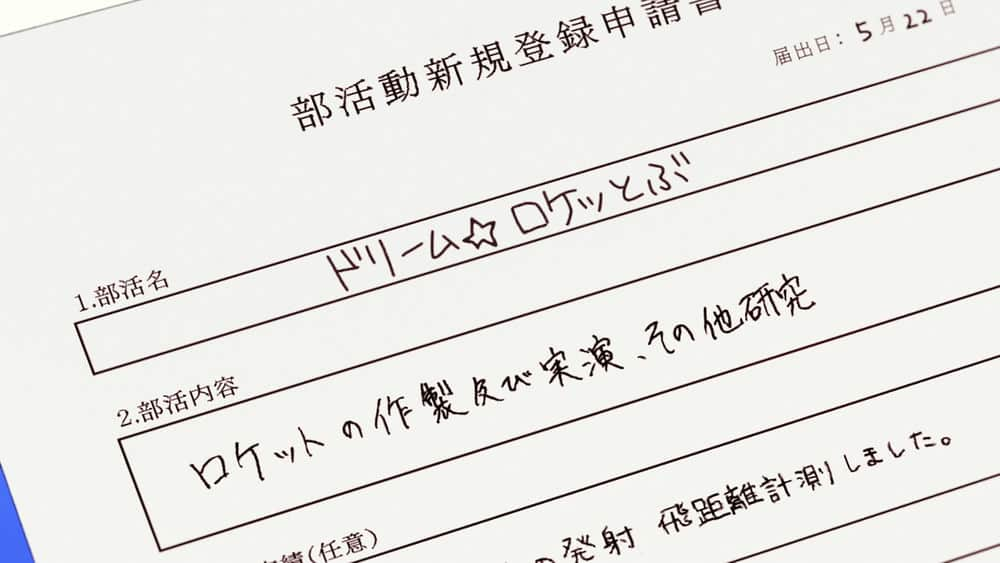 部活動新規登録申請書
届出日: 5月22日
1.部活名
ドリーム☆ロケッとぶ
2.部活内容
ロケットの作製及び実演、その他研究
績(任意)
の発射 飛距離計測しました。